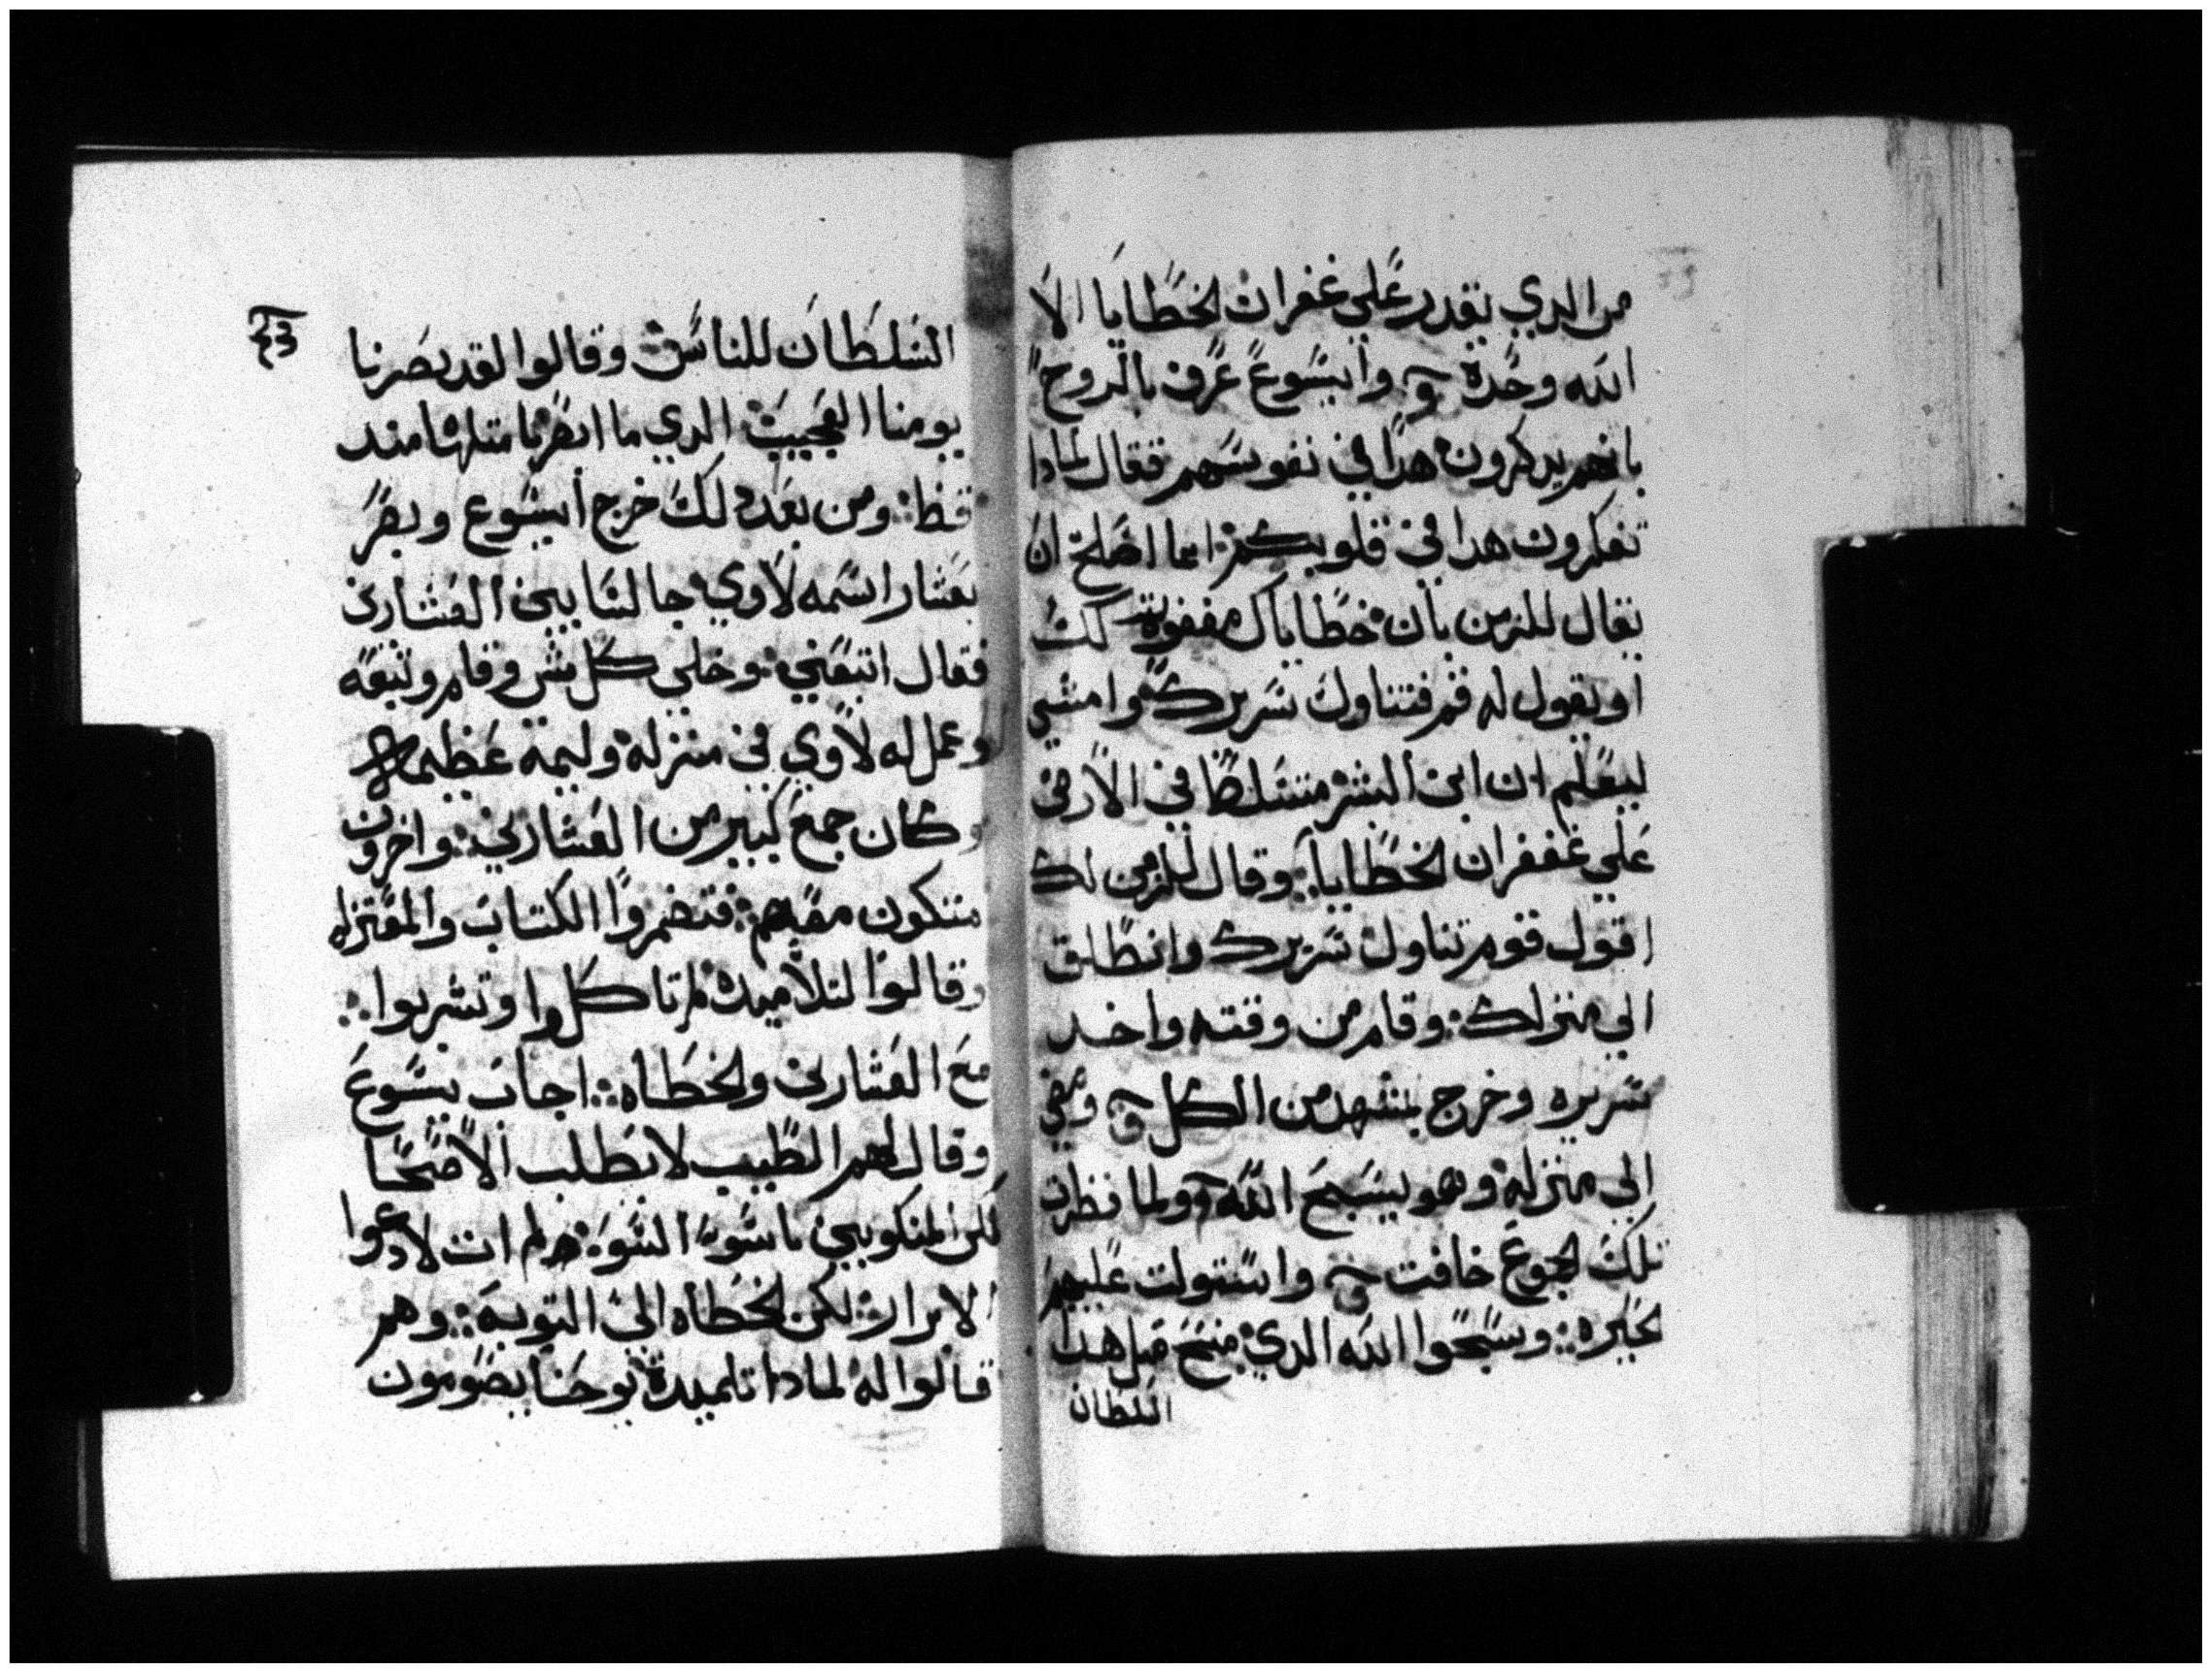 من الدي يقدر علي غفران لخطايا الا
الله وحده وايسوع عرف بالروح
بانهم يدكرون هدا في نفوسهم فقال لمادا
تفكرون هدا في قلوبكم ايما اصلح ان
يقال للزمن بان خطاياك مغفوره لك
او يقول له قم فتناول سريرك وامشي
ليعلم ان ابن البشر متسلط في الارض
علي غففران لخطايا وقال للزمن لك
اقول قوم تناول سريرك وانطلق
الي منزلك وقام من وقته واخد
سريره وخرج بمشهد من الكل ومضي
الي منزله وهو يسبح الله ولما نظرت
تلك لجموع خافت واستولت عليهم
لحيره وسبحوا الله الدي منح قبل هدا
السلطان
السلطان للناس وقالوا لقد بصرنا
يومنا العجيب الدي ما ابصرنا متلها مند
قط ومن بعد دلك خرج ايسوع وبصر
بعشار اسمه لاوي جالسا بين العشارين
فقال اتبعني وخلي كل شي وقام وتبعه
وعمل له لاوي في منزله وليمة عظيمه
وكان جمع كبير من العشارين واخرون
متكون معهم فتضمروا الكتاب والمعتزله
وقالوا لتلاميده لم تاكلوا وتشربوا
مع العشارين ولخطاه اجاب يسوع
وقال لهم الطبيب لا يطلب الاصحا
لكن المنكوبين باسوء السوء ولم ات لادعوا
الابرار لكن لخطاه الي التوبه وهم
قالوا له لمادا تلميدة يوحنا يصومون